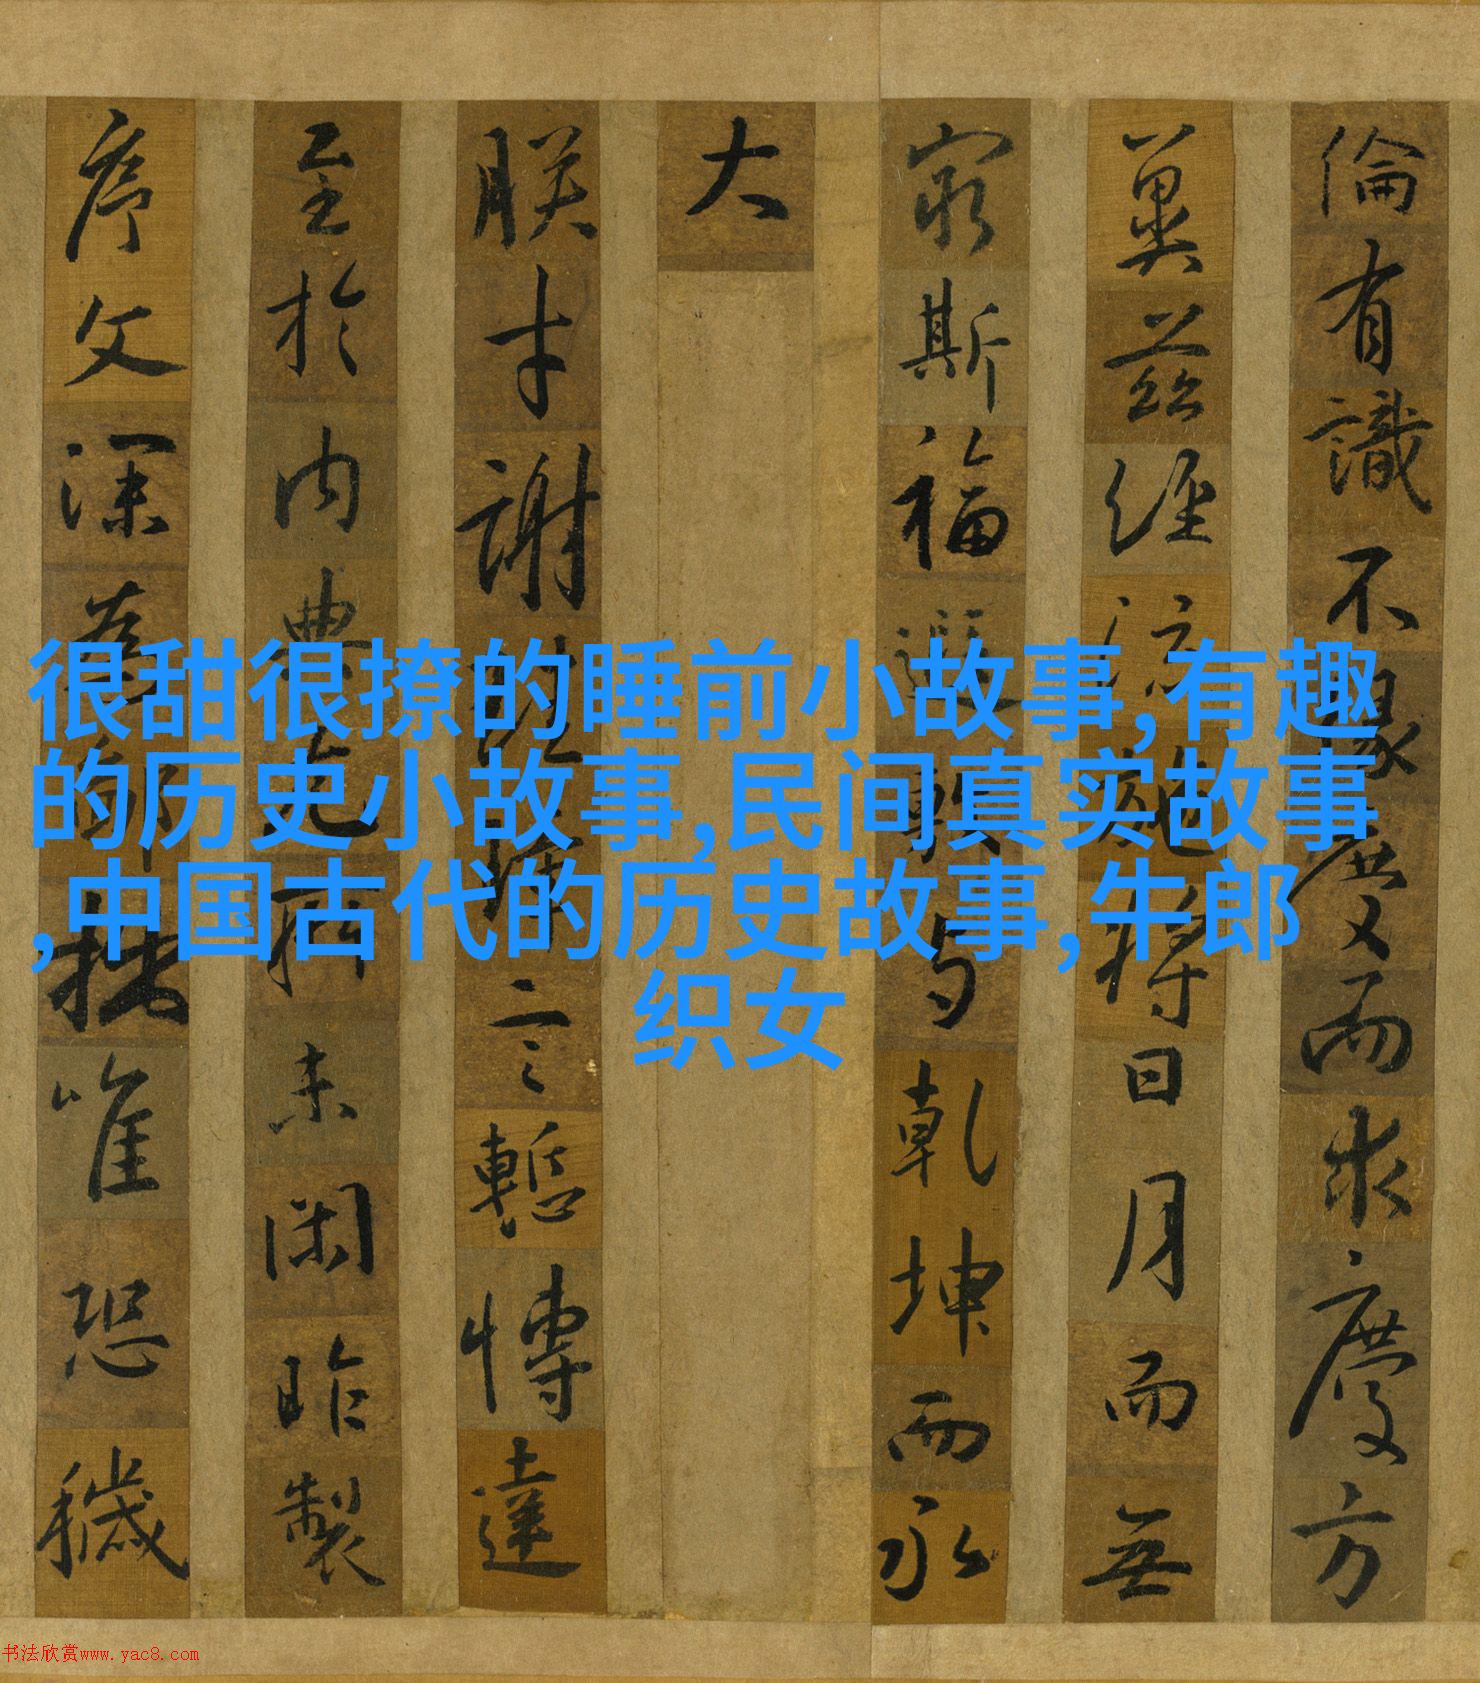 倫有識不緣慶而求慶方
冀茲經流施將日月而無
窮斯福遐敷與乾坤而永
大
朕才謝珪璋言慙博達
至於內典尤所未閑昨製
序文深為鄙拙唯恐穢
很甜很撩的睡前小故事,有趣
的历史小故事,民间真实故事
,中国古代的历史故事,牛郎
织女
书法欣赏www.yac8.com